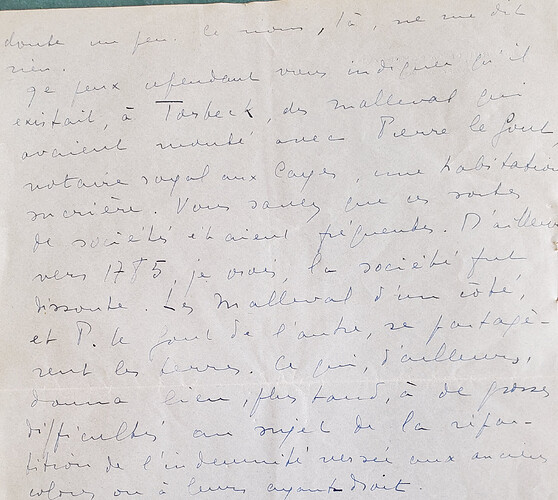 doute un peu. Ce nom, là, ne me dit
rien.
Je peux cependant vous indiquer qu'il
existait, à Torbeck, des Malleval qui
avaient monté avec Pierre le Gout,
notaire royal aux Cayes, une habitation
sucrière. Vous savez que ces sortes
de sociétés étaient fréquentes. D'ailleurs
vers 1785, je crois, la société fut
dissoute. Les Malleval d'un côté,
et P. le Gout de l'autre, se partagè-
rent les terres. Ce qui, d'ailleurs,
donna lieu, plus tard, à de grosses
difficultés au sujet de la répar-
tition de l'indemnité versée aux anciens
colons ou à leurs ayant-droit.